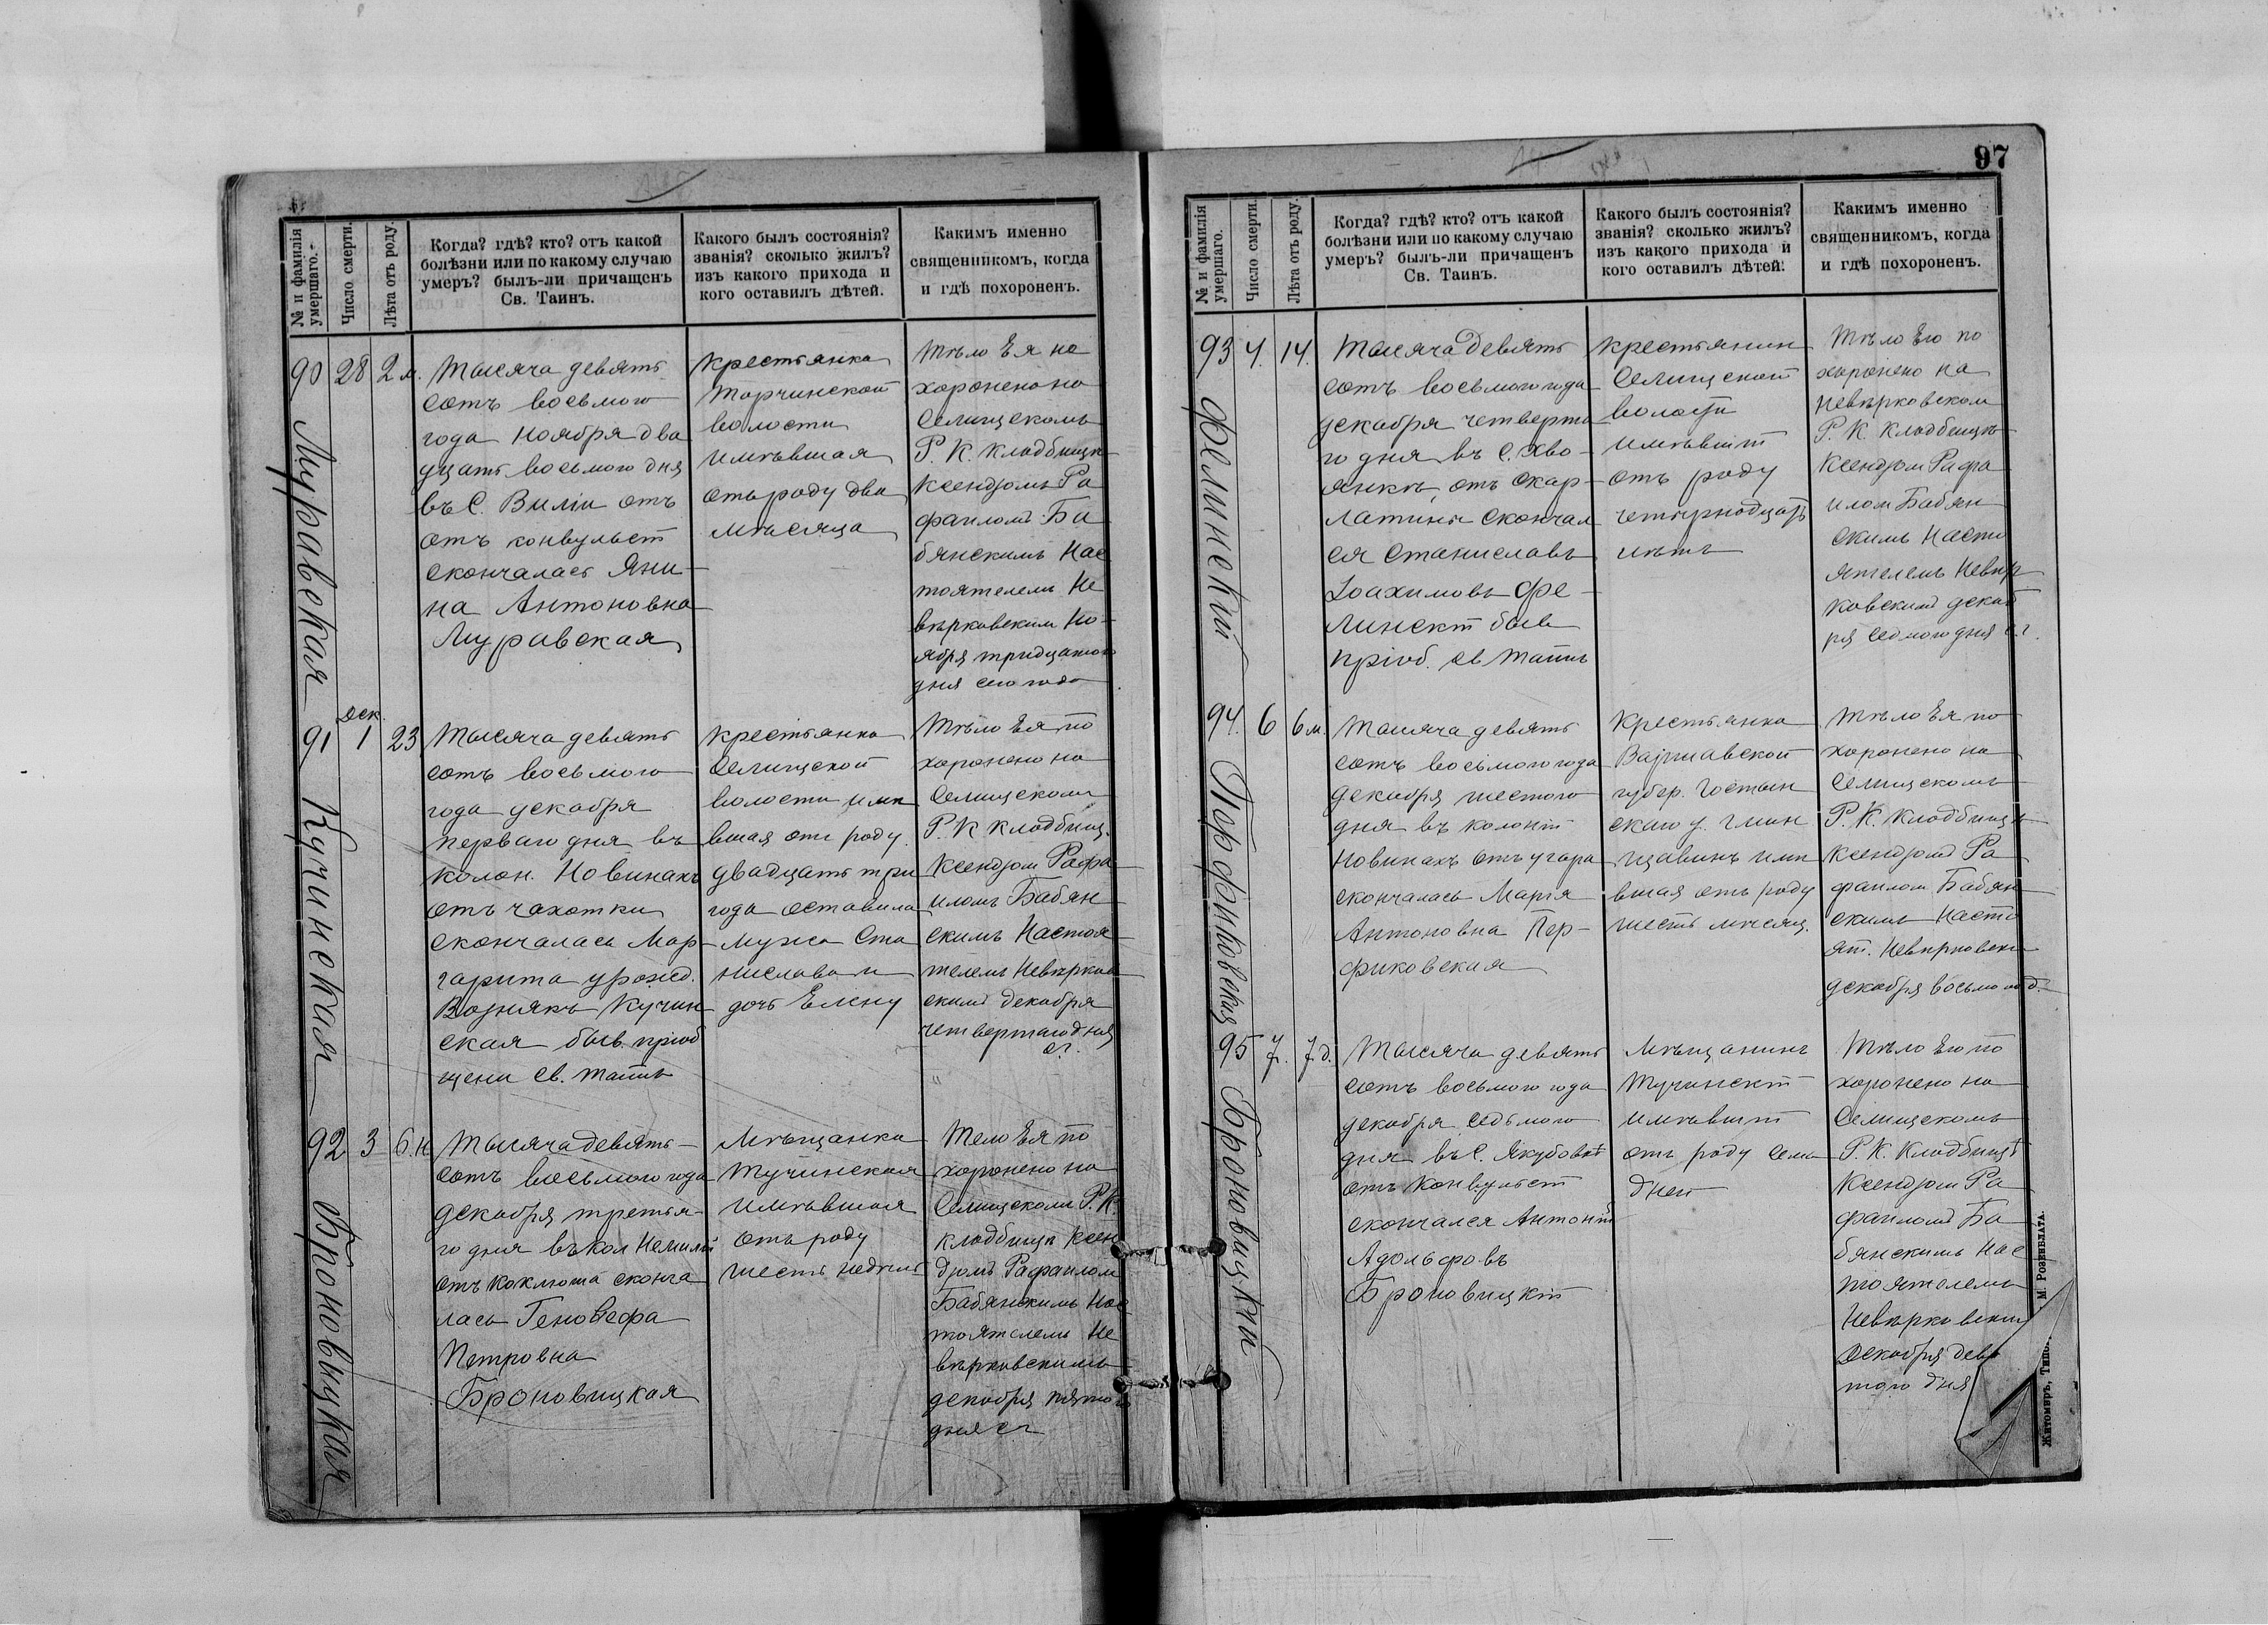 № и фамилія умершаго.
Число смерти.
Лѣта отъ роду.
Когда? гдѣ? кто? отъ какой
болѣзни или по какому случаю
умеръ? былъ-ли причащенъ
Св. Таинъ.
Какого былъ состоянія?
званія? сколько жилъ?
изъ какого прихода и
кого оставилъ дѣтей.
Какимъ именно
священникомъ, когда
и гдѣ похороненъ.
90
28
2 м.
Муравская
Тысяча девять
сотъ восьмого
года ноября два
дцать восьмого дня
въ С. Виліи отъ
отъ конвульсій
скончалась Яни
на Антоновна
Муравская
Крестьянка
Торчинской
волости
имѣвшая
отъ роду два
мѣсяца
Тѣло Ея по
хоронено на
Селищскомъ
Р. К. Кладбищѣ
Ксендзомъ Ра
фаиломъ Ба
бянскимъ Нас
тоятелемъ Не
вѣрковским Но-
ября тридцатого
дня сего года
91
Дек.
1
23
Кучинская
Тысяча девять
сотъ восьмого
года декабря
перваго дня въ
колон. Новинахъ
отъ чахотки
скончалась Мар-
гарита урожд.
Вознякъ Кучин
ская быв. пріоб
щена Св. Таинъ
Крестьянка
Селищской
волости имѣ
вшая отъ роду
двадцать три
года оставила
мужа Ста
нислава и
дочь Елену
Тѣло Ея по
хоронено на
Селищском
Р. К. Кладбищ.
Ксендзом Рафа
иломъ Бабян
скимъ Настоя
телемъ Невѣрков
скимъ декабря
четвертаго дня
с. г.
92
3
6. н
Броновицкая
Тысяча девять
сотъ восьмого года
декабря третья
го дня въ кол Немили
отъ коклюша сконча
лась Геновефа
Петровна
Броновицкая
Мѣщанка
Тучинская
имѣвшая
отъ роду
шесть недѣль
Тело Ея по
хоронено на
Селищском Р. К.
кладбищѣ Ксен
дзомъ Рафаилом
Бабянскимъ Нас
тоятелемъ Не
вѣрковскимъ
декабря пятого
дня с г
97
№ и фамилія умершаго.
Число смерти.
Лѣта отъ роду.
Когда? гдѣ? кто? отъ какой
болѣзни или по какому случаю
умеръ? былъ-ли причащенъ
Св. Таинъ.
Какого былъ состоянія?
званія? сколько жилъ?
изъ какого прихода и
кого оставилъ дѣтей.
Какимъ именно
священникомъ, когда
и гдѣ похороненъ.
93
4.
14.
Фелинскій
Тысяча девять
сотъ восьмого года
декабря четверта
го дня въ с. Хво-
янкѣ, отъ скар-
латины скончал
ся Станиславъ
Іоахимовъ Фе-
линскій быв
пріоб. св Таинъ
Крестьянин
Селищской
волости
имѣвшій
отъ роду
четырнадцать
лѣтъ
Тѣло Его по
хоронено на
Невѣрковском
Р. К. Кладбищѣ
Ксендзом Рафа
илом Бабян
скимъ Насто
ятелемъ Невѣр
ковскимъ декаб
ря седмого дня с. г.
94.
6
6 м.
Перфиковская
Тысяча девять
сотъ восьмого года
декабря шестого
дня въ колоніи
Новинахъ отъ угара
скончалась Марія
Антоновна Пер-
фиковская
Крестьянка
Варшавской
губер. Гостын
скаго у. Гмин
имѣ
вшая отъ роду
шесть мѣсяц.
Тѣло Ея по
хоронено на
Селищскомъ
Р. К. Кладбищѣ
Ксендзомъ Ра
фаилом Бабян
скимъ Насто
ят. Невѣрковски
декабря восьмого д.
95
7.
7 д.
Броновицкій
Тысяча девять
сотъ восьмого года
декабря седьмого
дня въ С. Якубовкѣ
отъ Конвульсій
скончался Антоній
Адольфовъ
Броновицкій
Мѣщанинъ
Тучинскій
имѣвшій
отъ роду семь
дней
Тѣло Его по
хоронено на
Селищскомъ
Р. К. Кладбищѣ
Ксендзом Ра
фаиломъ Ба
бянскимъ Нас
тоятелемъ
Невѣрковским
Декабря девя
того дня
Житомиръ, Типо. М. Розенблата.